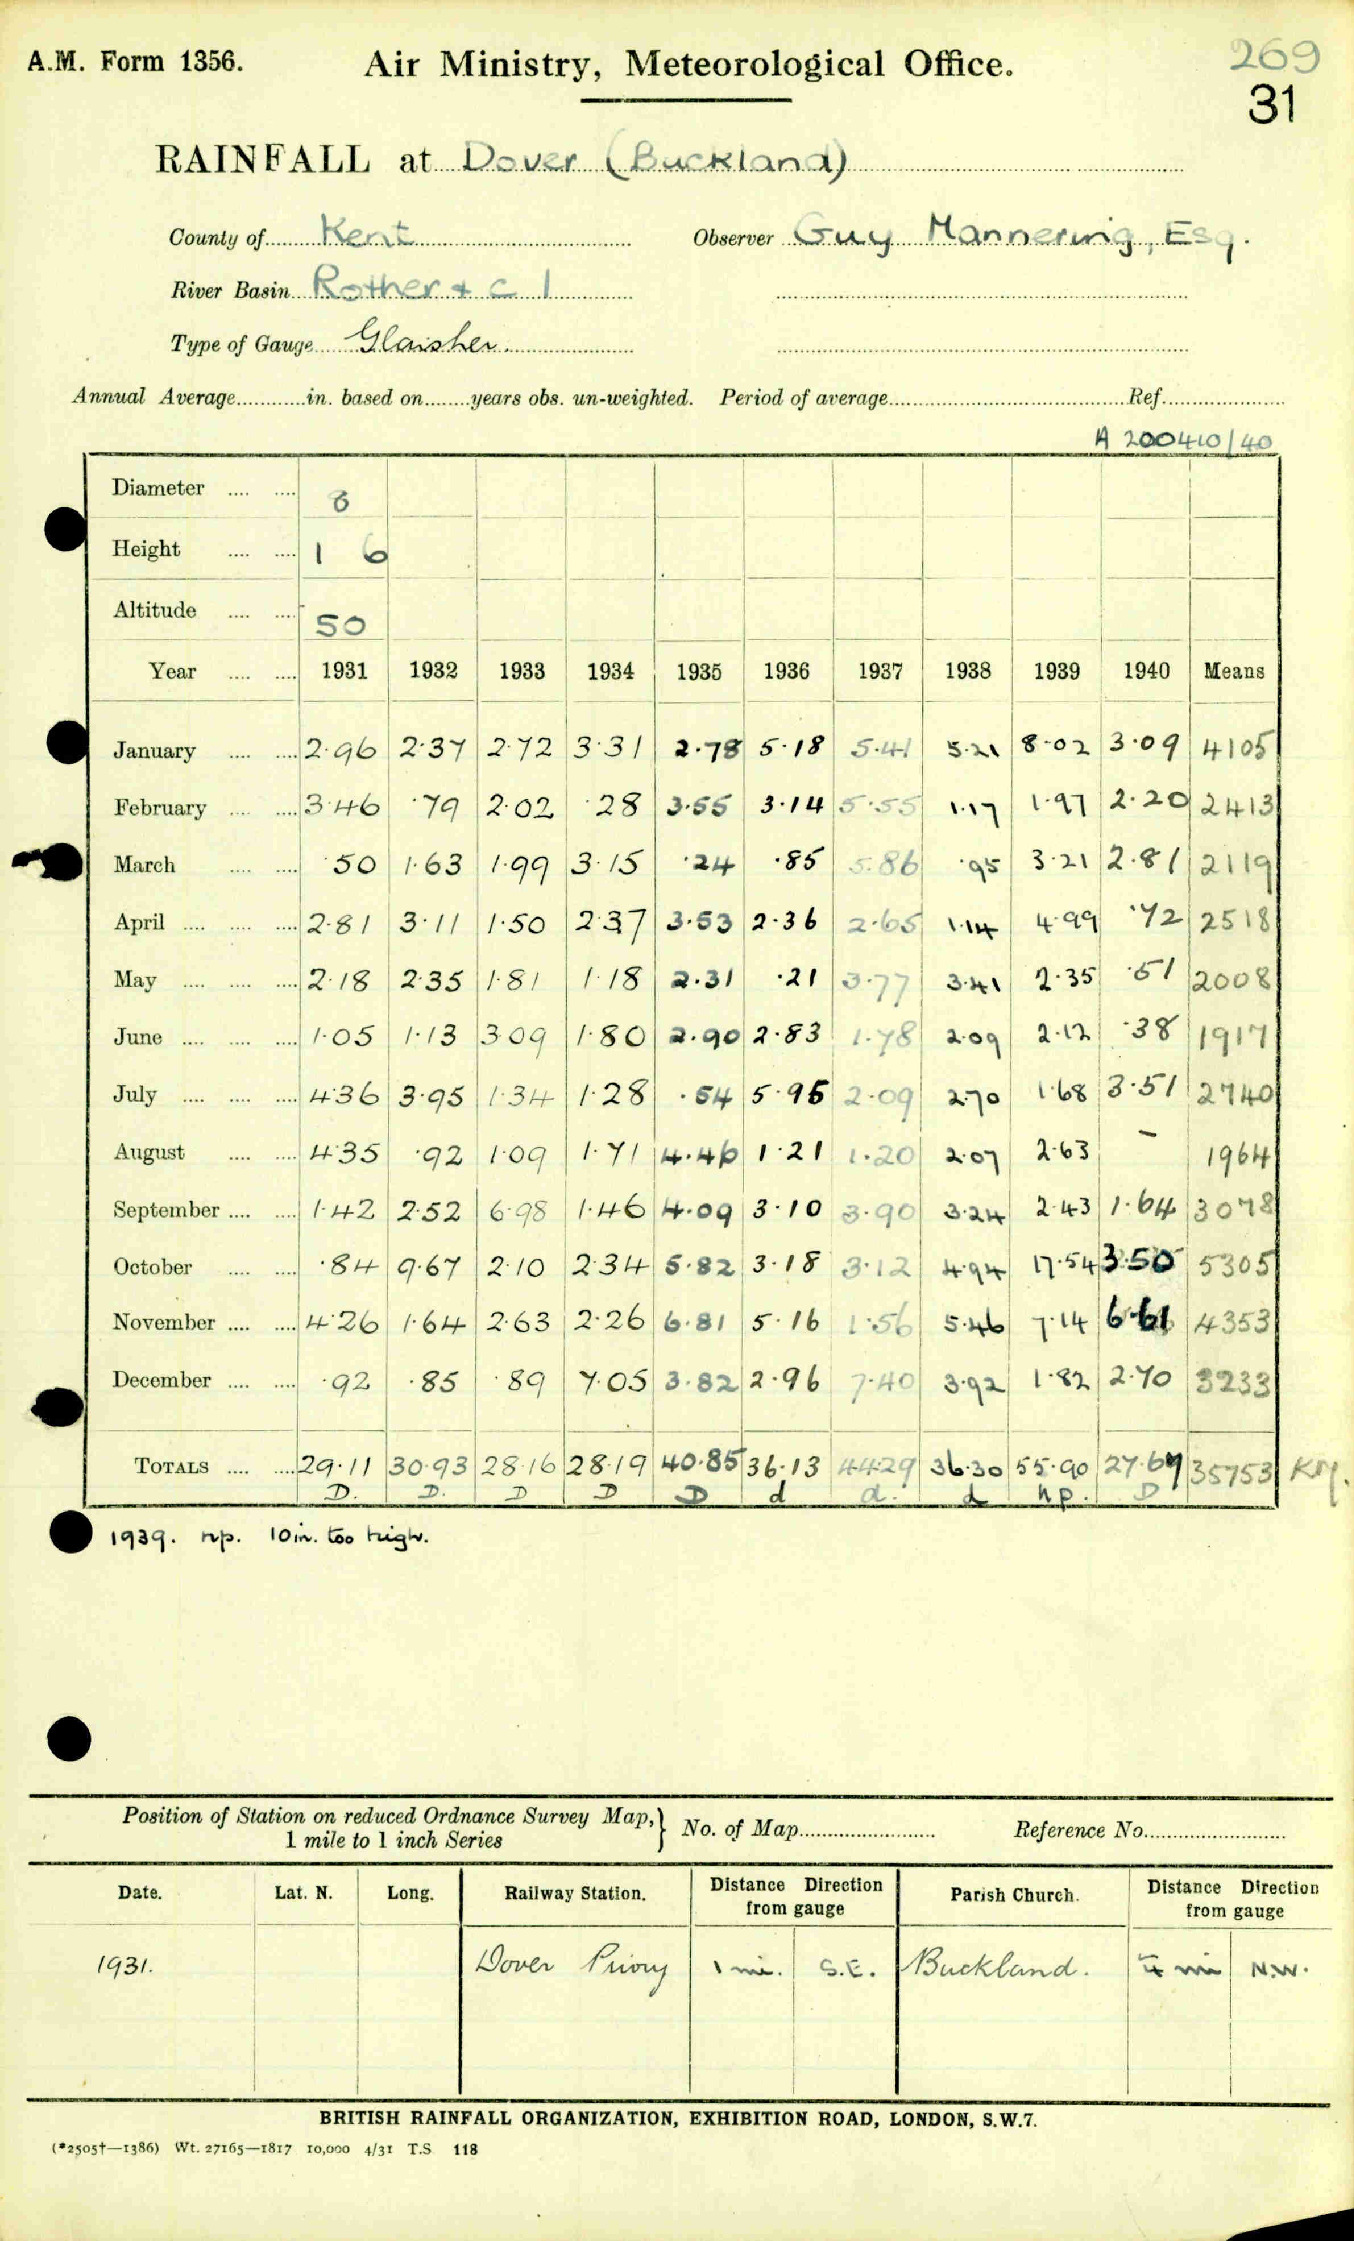 A.M. Form 1356.
Air Ministry, Meteorological Office.
269
31
RAINFALL at Dover (Buckland)
County of Kent Observer Guy Mannering, Esq.
River Basin Rother + c 1
Type of Gauge Glaisher.
Annual Average in. based on years obs. un-weighted. Period of average Ref.
A 200410/40
Diameter 8
Height 1 6
Altitude 50
Year 1931 1932 1933 1934 1935 1936 1937 1938 1939 1940 Means
January 2.96 2.37 2.72 3.31 2.78 5.18 5.41 5.21 8.02 3.09 4105
February 3.46 .79 2.02 .28 3.55 3.14 5.55 1.17 1.97 2.20 2413
March .50 1.63 1.99 3.15 .24 .85 5.86 .95 3.21 2.81 2119
April 2.81 3.11 1.50 2.37 3.53 2.36 2.65 1.14 4.99 .72 2518
May 2.18 2.35 1.81 1.18 2.31 .21 3.77 3.41 2.35 .51 2008
June 1.05 1.13 3.09 1.80 2.90 2.83 1.78 2.09 2.12 .38 1917
July 4.36 3.95 1.34 1.28 .54 5.95 2.09 2.70 1.68 3.51 2740
August 4.35 .92 1.09 1.71 4.46 1.21 1.20 2.07 2.63 – 1964
September 1.42 2.52 6.98 1.46 4.09 3.10 3.90 3.24 2.43 1.64 3078
October .84 9.67 2.10 2.34 5.82 3.18 3.12 4.94 17.54 3.50 5305
November 4.26 1.64 2.63 2.26 6.81 5.16 1.56 5.46 7.14 6.61 4353
December .92 .85 .89 7.05 3.82 2.96 7.40 3.92 1.82 2.70 3233
TOTALS 29.11 30.93 28.16 28.19 40.85 36.13 44.29 36.30 55.90 27.67 35753 KM.
D. D. D D D d d. d np. D
1939. np. 10in. too high.
Position of Station on reduced Ordnance Survey Map, 1 mile to 1 inch Series } No. of Map Reference No.
Date. Lat. N. Long. Railway Station. Distance Direction from gauge Parish Church. Distance Direction from gauge
1931. Dover Priory 1 mi. S.E. Buckland. ¼ mi N.W.
BRITISH RAINFALL ORGANIZATION, EXHIBITION ROAD, LONDON, S.W.7.
(*2505†—1386) Wt. 27165—1817 10,000 4/31 T.S 118